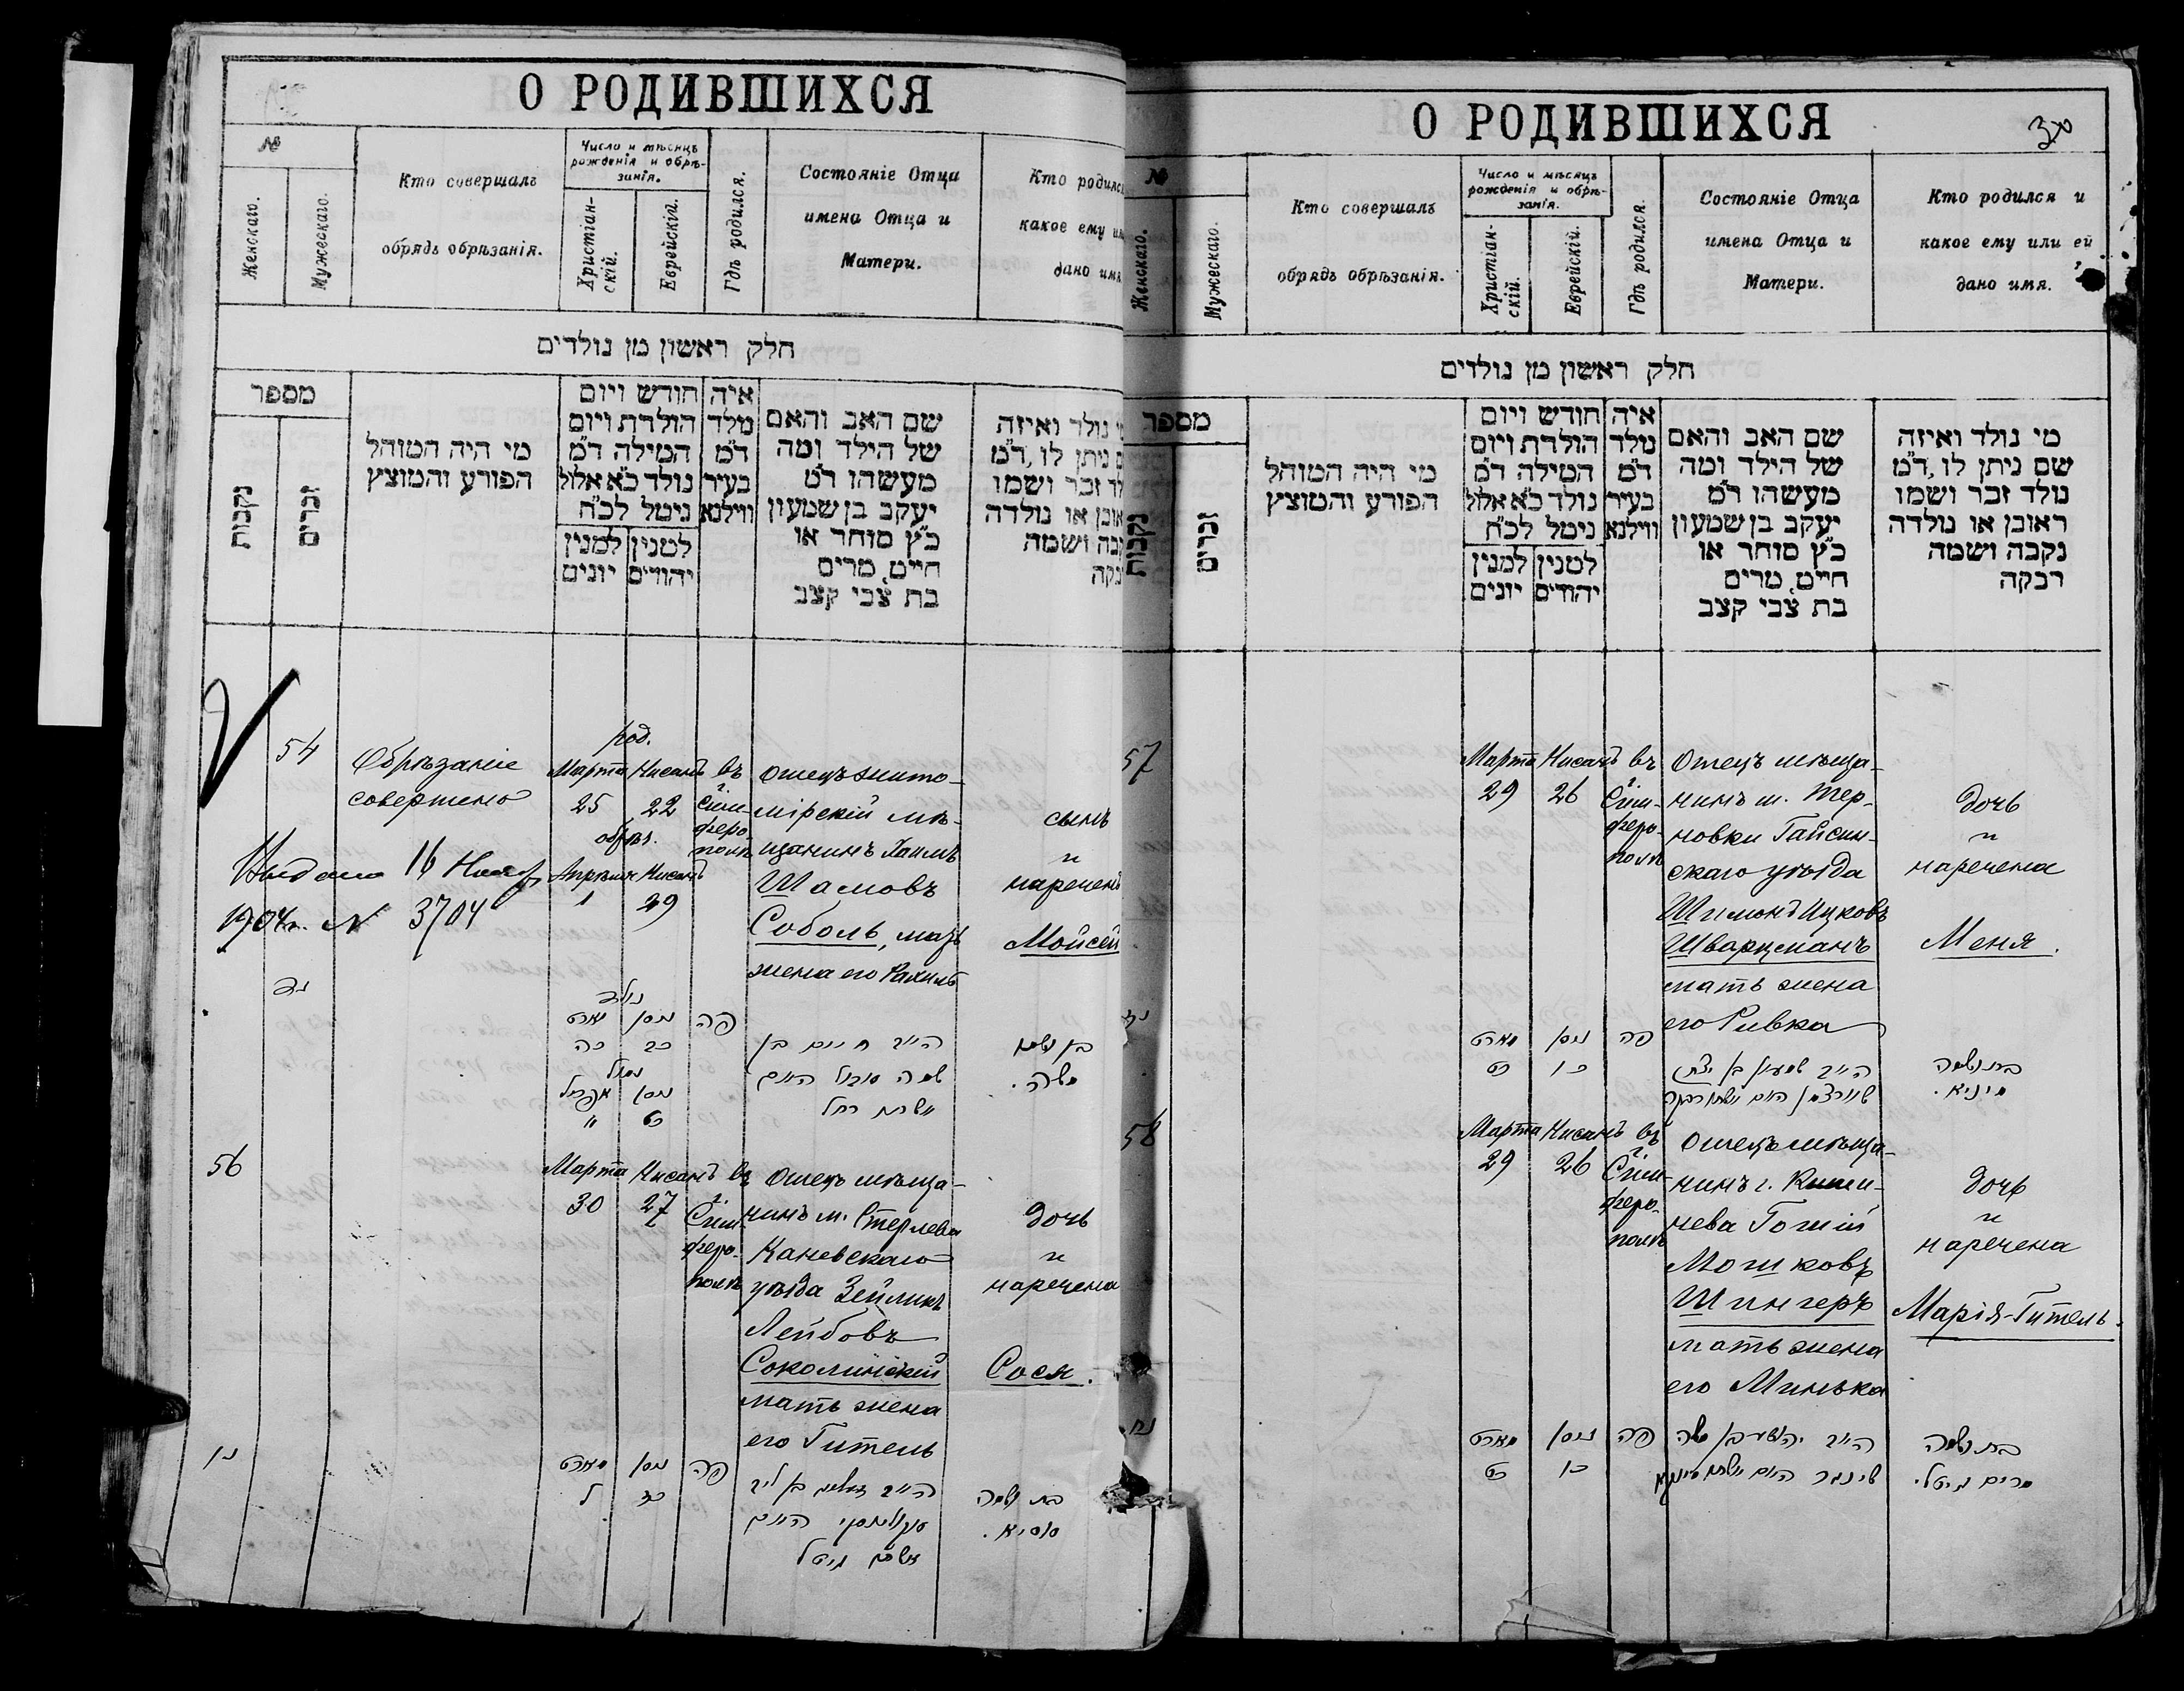 О РОДИВШИХСЯ
№
Женскаго.
Мужескаго.
Кто совершалъ
обрядъ обрѣзанія.
Число и мѣсяцъ
рожденія и обрѣ-
занія.
Христіан-
скій.
Еврейскій.
Гдѣ родился.
Состояніе Отца
имена Отца и
Матери.
Кто родилс
какое ему
дано имя
חלק ראשון מן נולדים
מספר
נקבות
זכרים
מי היה המוהל
הפורע והמוצץ
חודש ויום
הולדת ויום
המילה ד״מ
נולד כ״א אלול
ניטל לכ״ח
למנין יהודים
למנין יונים
איה
מלד
ד״מ
בעיר
ווילנא
שם האב והאם
של הילד ומה
מעשהו ד״מ
יעקב בן שמעון
כ״ץ סוחר או
חייט, מרים
בת צבי קצב
נולד ואיזה
ניתן לו, ד״מ
זכר ושמו
או נולדה
ושמה
54
Обрѣзаніе
совершено
род.
Марта Нисанъ
25 22
обрѣз.
Апрѣля Нисанъ
1 29
въ
г.
Сим-
феро-
полѣ
Отецъ жито-
мірскій мѣ-
щанинъ Хаимъ
Шамовъ
Соболь, мать
жена его Рахиль
сынъ
и
нареченъ
Мойсей
Выдано 16 Нояб.
1904г. N 3704
נד
נולד
מארט ניסן
כה כב
נימול
אפריל ניסן
כט
פה
הי״ר חיים בן
משה סובול האם
אשתו רחל
בן ושמו
משה.
56
Марта Нисанъ
30 27
въ
г.
Сим-
феро-
полѣ
Отецъ мѣща-
нинъ м. Степлева
Каневскаго
уѣзда Зейликъ
Лейбовъ
Соколинскій
мать жена
его Гитель
дочь
и
наречена
Сося.
נו
מארט ניסן
ל כז
פה
הי״ר זעליק בן ליב
סוקולינסקי האם
אשתו גיטל
בת ושמה
סוסיא.
О РОДИВШИХСЯ
30
№
Женскаго.
Мужескаго.
Кто совершалъ
обрядъ обрѣзанія.
Число и мѣсяцъ
рожденія и обрѣ-
занія.
Христіан-
скій.
Еврейскій.
Гдѣ родился.
Состояніе Отца
имена Отца и
Матери.
Кто родился и
какое ему или ей
дано имя.
חלק ראשון מן נולדים
מספר
נקבות
זכרים
מי היה המוהל
הפורע והמוצץ
חודש ויום
הולדת ויום
המילה ד״מ
נולד כ״א אלול
ניטל לכ״ח
למנין יהודים
למנין יונים
איה
מלד
ד״מ
בעיר
ווילנא
שם האב והאם
של הילד ומה
מעשהו ד״מ
יעקב בן שמעון
כ״ץ סוחר או
חייט, מרים
בת צבי קצב
מי נולד ואיזה
שם ניתן לו, ד״מ
נולד זכר ושמו
ראובן או נולדה
נקבה ושמה
רבקה
57
Марта Нисанъ
29 26
въ
г.
Сим-
феро-
полѣ
Отецъ мѣща-
нинъ м. Тер-
новки Гайсин-
скаго уѣзда
Шимонъ Ицковъ
Шварцманъ
мать жена
его Ривка
дочь
и
наречена
Меня.
נז
מארט ניסן
כט כו
פה
הי״ר שמעון בן יצחק
שווארצמן האם אשתו רבקה
בת ושמה
מיניא.
58
Марта Нисанъ
29 26
въ
г.
Сим-
феро-
полѣ
Отецъ мѣща-
нинъ г. Киши-
нева Гошій
Мошковъ
Шингеръ
мать жена
его Минька
дочь
и
наречена
Марія-Гитель.
נח
מארט ניסן
כט כו
פה
הי״ר יהושע בן משה
שינגר האם אשתו מינקא
בת ושמה
מרים גיטל.